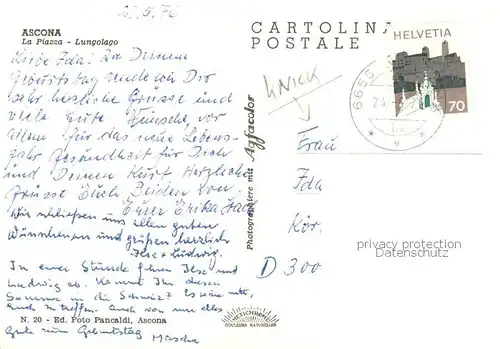 2.5.76
ASCONA
La Piazza - Lungolago
Liebe Ida! Zu Deinem
Geburtstag sende ich Dir
sehr herzliche Grüsse und
viele gute Wünsche, vor
allem für das neue Lebens-
jahr Gesundheit für Dich
und Deinen Kurt Herzliche
Grüsse Euch Beiden von
Eurer Erika
Wir schließen uns allen guten
Wünschen und grüßen herzlich
Ilse + Ludwig.
In einer Stunde fahren Ilse und
Ludwig ab. Kommt Ihr diesen
Sommer in die Schweiz? Es wäre nett,
Euch zu treffen. Auch von mir alles
Gute zum Geburtstag
Mascha
N. 20 - Ed. Foto Pancaldi, Ascona
Photographiere mit Agfacolor
METICHROME
COULEURS NATURELLES
CARTOLINA
POSTALE
HELVETIA
70
Frau
Ida
Kör.
D 300
privacy protection
Datenschutz